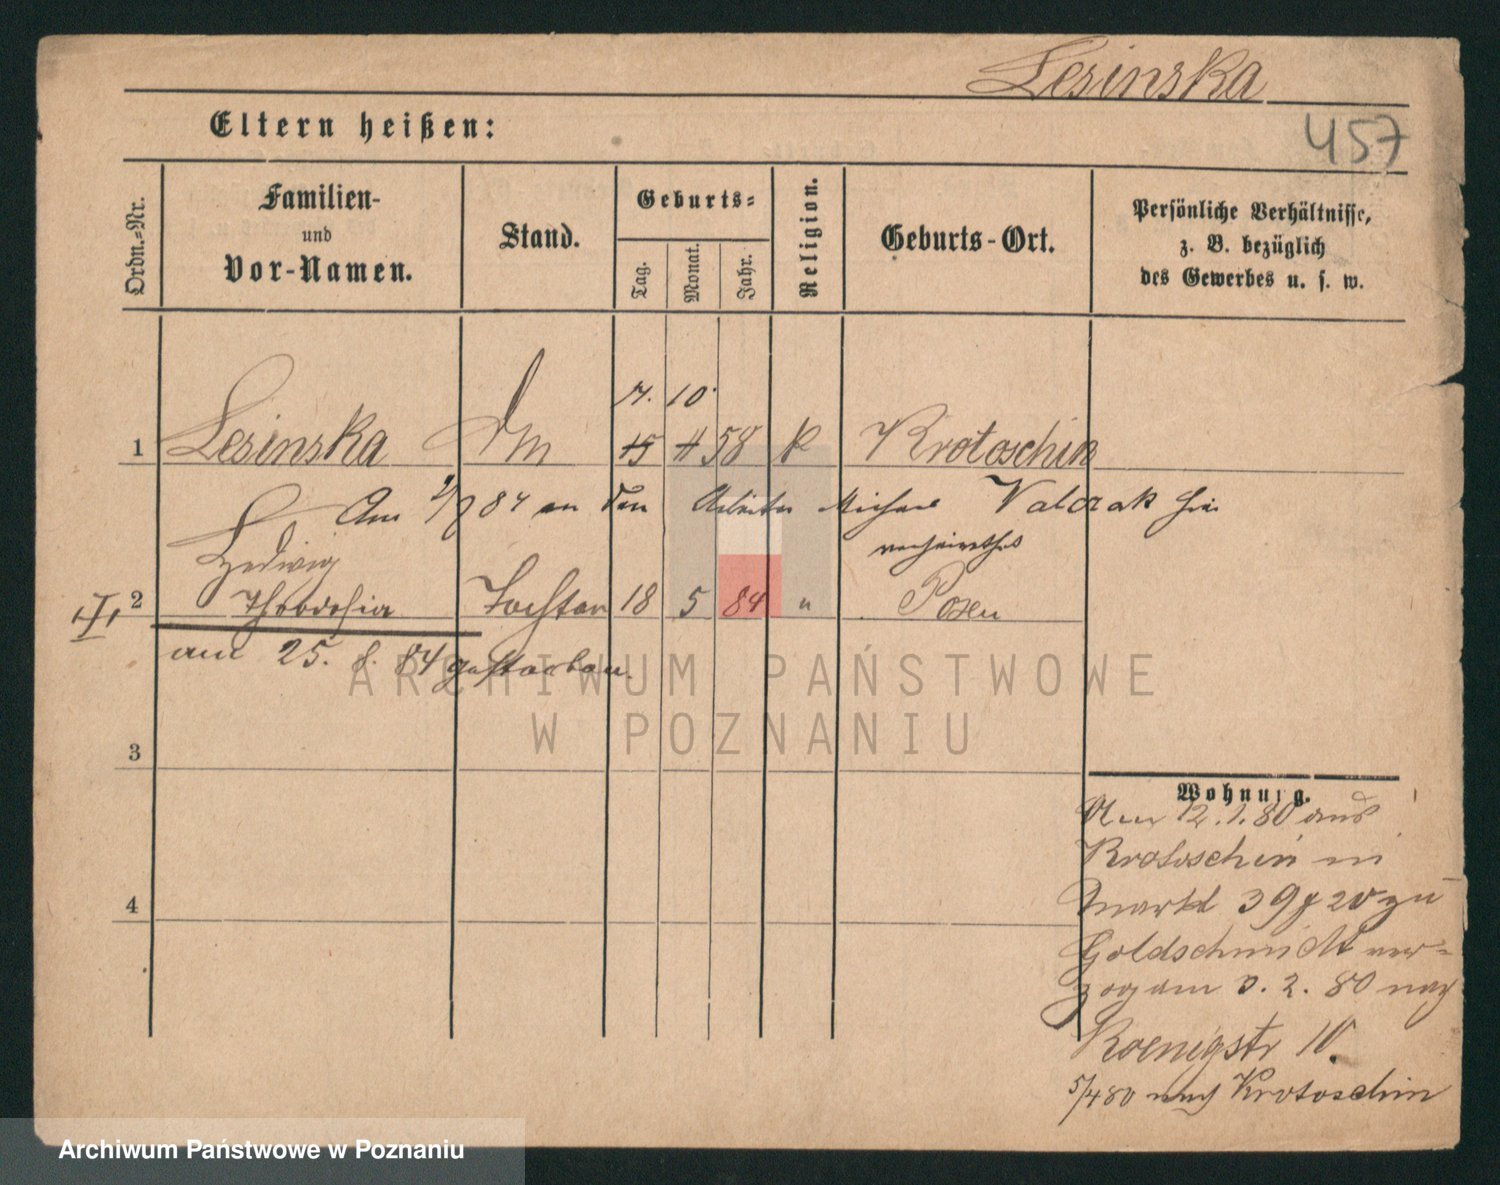 Lesinska
Eltern heißen:
457
Ordn.-Nr.
Familien-
und
Vor-Namen.
Stand.
Geburts-
Tag.
Monat.
Jahr.
Religion.
Geburts-Ort.
Persönliche Verhältnisse,
z. B. bezüglich
des Gewerbes u. s. w.
10
1 Lesinska 15 58 K Krotoschin
Am 84 an den Arbeiter Michael Valczak hier
verheirathet
Hedwig
2 Theodosia Tochter 18 5 84 " Posen
am 25. 8. 84 gestorben.
ARCHIWUM PAŃSTWOWE
W POZNANIU
3
4
Wohnung.
Am 12.1.80 aus
Krotoschin in
Markt 39 zu
Goldschmidt ver-
zog am 3. 2. 80 nach
Koenigstr 10.
5/4 80 nach Krotoschin
Archiwum Państwowe w Poznaniu